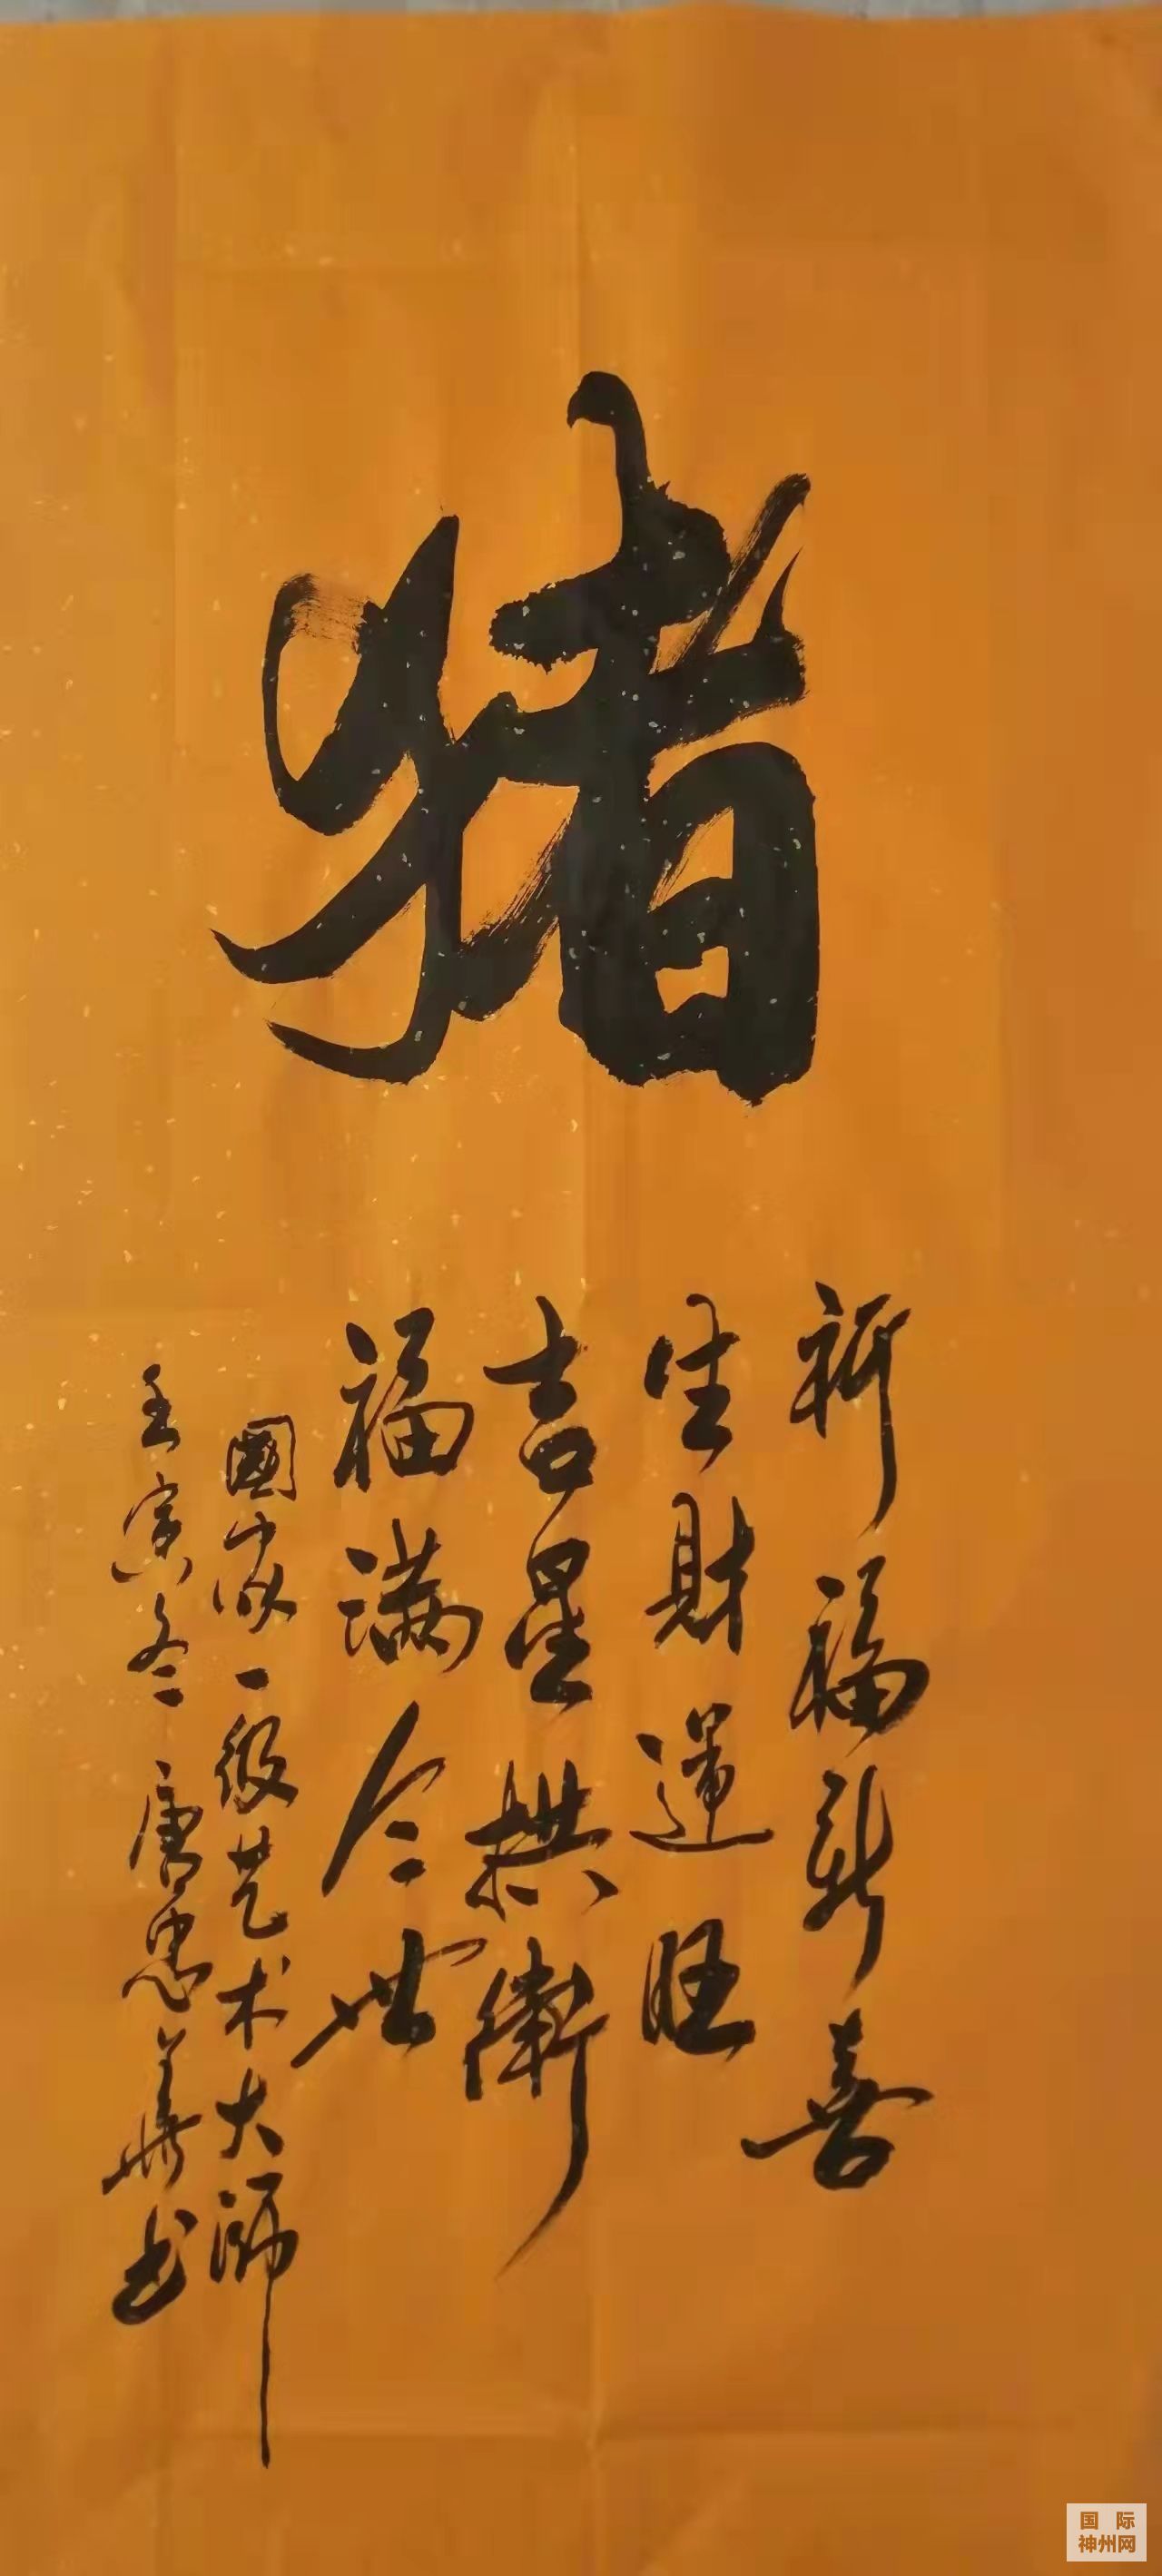 猪
祈福新喜
生财运旺
吉星拱衛
福满今世
國家一级艺术大师
壬寅冬 唐忠義书
国际
神州网